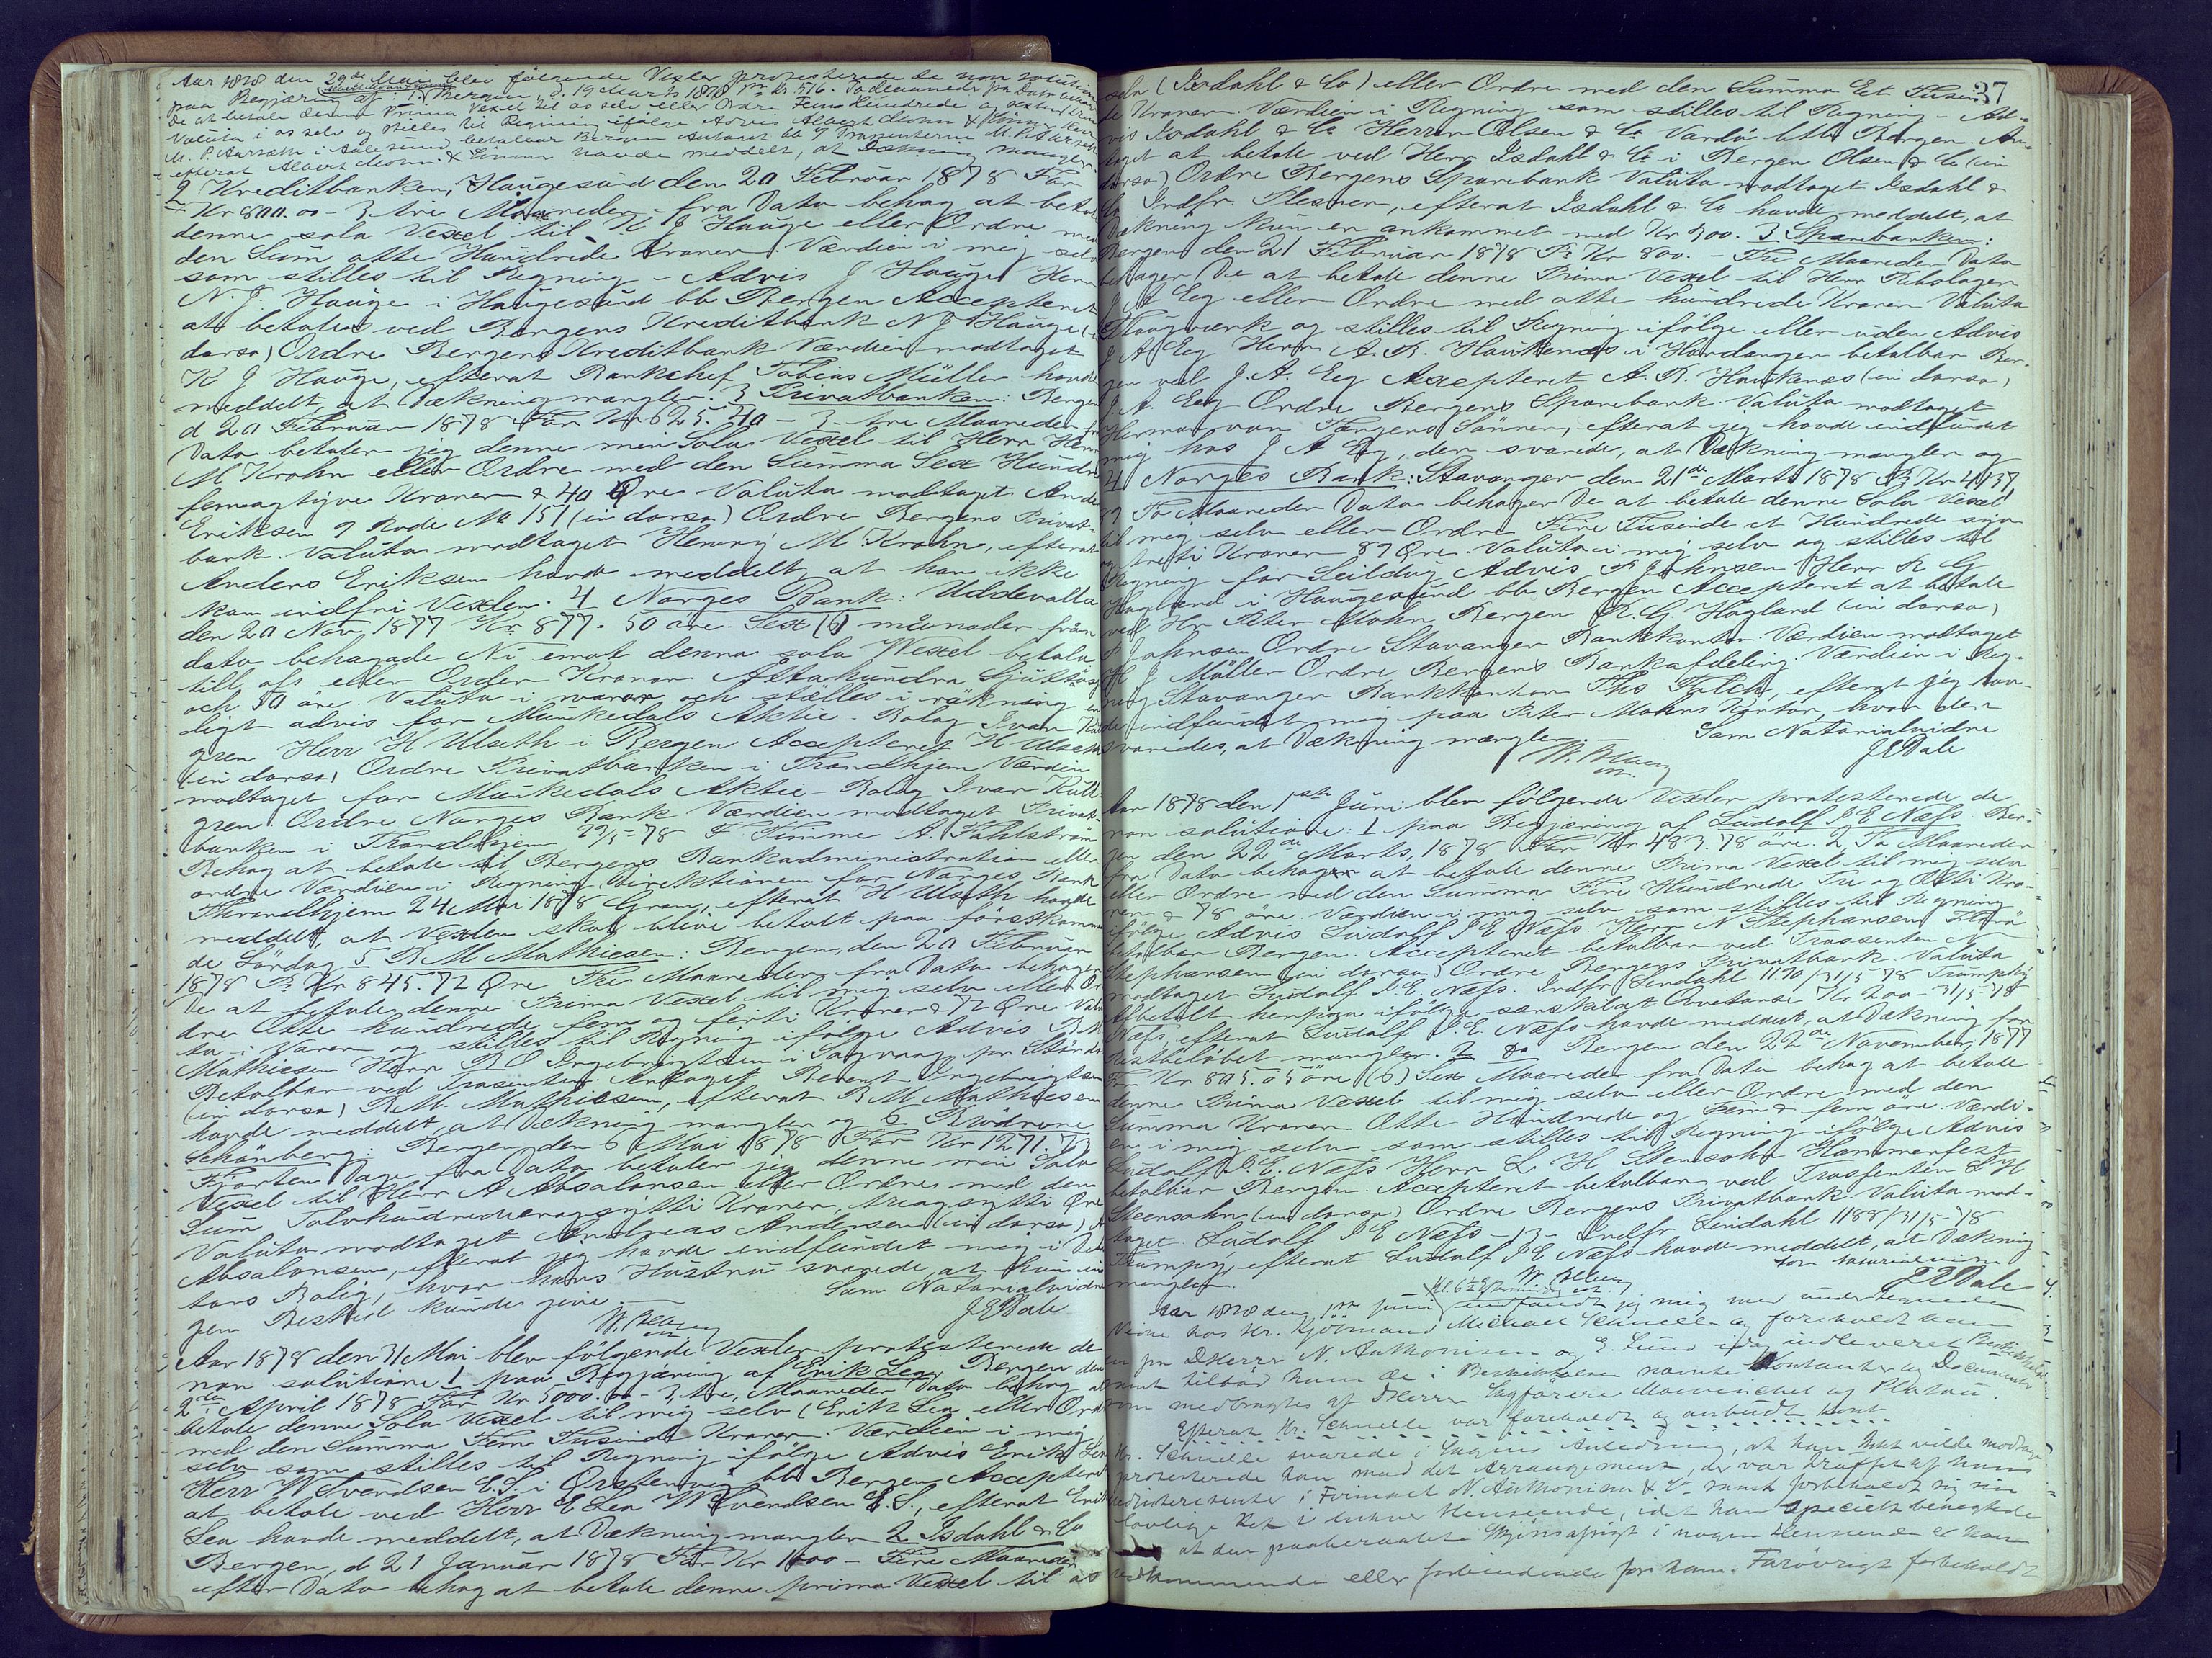 Aar 1878 den 29de Mai blev følgende Vexler protesterede de non solutione
paa Begjæring af: 1 Bergen, d. 19 Marts 1878 pr Kr 516. To Maaneder fra Dato behager
De at betale denne Prima Vexel til os selv eller Ordre Fem Hundrede og sexten Kroner
Valuta i os selv og stilles til Regning ifølge Advis Albert Mohn & Herr
M. P. Aarsæth i Aalesund betalbar Bergen Antaget M. P. Aarsæth
efterat Albert Mohn & havde meddelt, at Dækning mangler.
2 Kreditbanken, Haugesund den 20 Februar 1878 For
Kr 800.00 - 3 tre Maaneder fra Dato behag at betale
denne sola Vexel til K J Hauge eller Ordre med
den Sum otte Hundrede Kroner. Værdien i mig selv
som stilles til Regning - Advis J Hauge Herr
N. J. Hauge i Haugesund bb Bergen Accepteret
at betales ved Bergens Kreditbank N J Hauge (in
dorso) Ordre Bergens Kreditbank Værdien modtaget
K J Hauge, efterat Bankchef Tobias Müller havde
meddelt, at Dækning mangler. 3 Privatbanken: Bergen
d 20 Februar 1878 For Kr 625.40 - 3 tre Maaneder fra
Dato betaler jeg denne min Sola Vexel til Herr Henry
M Krohn eller Ordre med den Summa Sex Hundrede
femogtyve Kroner & 40 Øre Valuta modtaget Anders
Eriksen 9 Rode No 151 (in dorso) Ordre Bergens Privat-
bank. Valuta modtaget Henry M. Krohn, efterat
Anders Eriksen havde meddelt, at han ikke
kan indfri Vexlen. 4 Norges Bank: Uddevalla
den 20 Nov, 1877 Kr 877. 50 öre. Sex (6) månader från
dato behagade Ni emot denna sola Wexel betala
till oss eller Order Kronor Åttahundra Sjuttiosju
och 50 öre. Valuta i waror och ställes i räkning en-
ligt advis for Munkedals Aktie - Bolag Ivar Kull-
gren Herr H Ulseth i Bergen Accepteret H Ulseth
(in dorso) Ordre Privatbanken i Trondhjem Værdien
modtaget for Munkedals Aktie - Bolag Ivar Kull-
gren. Ordre Norges Bank Værdien modtaget Privat-
banken i Trondhjem 22/5-78 F. Finne A. Fahlstrøm
Behag at betale til Bergens Bankadministration eller
ordre Værdien i Regning Direktionen for Norges Bank
Throndhjem 24 Mai 1878 Gram, efterat H Ulseth havde
meddelt, at Vexlen skal blive betalt paa førstkommen-
de Lørdag 5 B M Mathiesen: Bergen, den 20 Februar
1878 Pr Kr 845.72 Øre Tre Maaneder fra Dato behager
De at betale denne Prima Vexel til mig selv eller Or-
dre Otte hundrede fem og førti Kroner & 72 Øre Valu-
ta i Varer og stilles til Regning ifølge Advis B. M.
Mathiesen Herr B O Ingebrigtsen i Sagvaag pr Stordø
Betalbar ved Trasenten. Antaget Berent Ingebrigtsen
(in dorso) B. M. Mathiesen, efterat B M Mathiesen
havde meddelt, at Dækning mangler og 6 Brødrene
Schönberg: Bergen, den 6 Mai 1878 For Kr 1271.73
Fjorten Dage fra Dato betaler jeg denne min Sola
Vexel til Herr A Absalonsen eller Ordre med den
Sum Tolvhundredeenogsytti Kroner, treogsytti Øre
Valuta modtaget Andreas Andersen (in dorso) A
Absalonsen, efterat jeg havde indfundet mig i Debi-
tors Bolig, hvor hans Hustru svarede, at hun in-
gen Besked kunde give.
Som Notarialvidne
J E Dale
Aar 1878 den 31 Mai blev følgende Vexler protesterede de
non solutione 1 paa Begjæring af Erik Lea, Bergen den
2den April 1878 For Kr 5000.00 - 3, tre, Maaneder Dato behag at
betale denne Sola Vexel til mig selv (Erik Lea eller Ordre
med den Summa Fem Tusinde Kroner. Værdien i mig
selv som stilles til Regning ifølge Advis Erik Lea
Herr W Svendsen E. S. i Ørstenvig bb Bergen Accepteret
at betale ved Herr E Lea W Svendsen E. S., efterat Erik
Lea havde meddelt, at Dækning mangler 2 Isdahl & Co
Bergen, d 21 Januar 1878 For Kr 1000 - Fire Maaneder
efter Dato behag at betale denne prima Vexel til os
37
selv (Isdahl & Co) eller Ordre med den Summa Et Tusin-
de Kroner. Værdien i Regning som stilles til Regning - Ad-
vis Isdahl & Co Herrer Olsen & Co Vardø bbr Bergen. An-
taget at betale ved Herr Isdahl & Co i Bergen Olsen & Co (in
dorso) Ordre Bergens Sparebank Valuta modtaget Isdahl &
Co Indfr. Plesner, efterat Isdahl & Co havde meddelt, at
Dækning kun er ankommet med Kr 500. 3 Sparebanken:
Bergen den 21 Februar 1878 Pr Kr 800. - Tre Maaneder Dato
behager De at betale denne Prima Vexel til Herr Rebslager
J A Eeg eller Ordre med otte hundrede Kroner Valuta
Taugværk og stilles til Regning ifølge eller uden Advis
J A Eeg Herr A. R. Haukenæs i Hardanger betalbar Ber-
gen ved J. A. Eeg Accepteret A. R. Haukenæs (in dorso)
J. A. Eeg Ordre Bergens Sparebank. Valuta modtaget
Herman von Tangens Sønner, efterat jeg havde indfundet
mig hos J A Eeg, der svarede, at Dækning mangler og
4 Norges Bank: Stavanger den 21de Marts 1878 Pr Kr 4137,
87 To Maaneder Dato behager De at betale denne Sola Vexel
til mig selv eller Ordre Fire Tusinde et Hundrede syv
og tretti Kroner 87 Øre. Valuta i mig selv og stilles til
Regning for Seildug Advis P Johnsen Herr R G
Hagland i Haugesund bb Bergen Accepteret at betale
ved Hr. Peter Mohn Bergen R. G. Hagland (in dorso)
P Johnsen Ordre Stavanger Bankkontor. Værdien modtaget
H J Müller Ordre Bergens Bankafdeling. Værdien i Reg-
ning Stavanger Bankkontor Ths Falck, efterat jeg hav-
de indfundet mig paa Peter Mohns Kontor, hvor der
svaredes, at Dækning mangler. Som Notarialvidne
J E Dale
Aar 1878 den 1ste Juni blev følgende Vexler protesterede de
non solutione: 1 paa Begjæring af Ludolf J E Næss Ber-
gen den 22de Marts, 1878 For Kr 483.78 øre. 2, To Maaneder
fra Dato behager at betale denne Prima Vexel til mig selv
eller Ordre med den Summa Fire Hundrede Tre og Otti Kro-
ner & 78 øre. Værdien i mig selv som stilles til Regning
ifølge Advis Ludolf J E Næss. Herr N Stephansen Florø
betalbar Bergen. Accepteret betalbar ved Trassenten N
Stephansen (in dorso) Ordre Bergens Privatbank. Valuta
modtaget Ludolf J. E. Næss. Indfr Lindahl 1170/31/5 78 Trumpy
Afbetalt herpaa ifølge særskilt Qvitanse Kr 200 - 31/5-78
Næss, efterat Ludolf J. E. Næss havde meddelt, at Dækning for
Restbeløbet mangler. 2 Do Bergen den 22de November 1877
For Kr 805.05 øre (6) Sex Maaneder fra Dato behag at betale
denne Prima Vexel til mig selv eller Ordre med den
Summa Kroner Otte Hundrede og Fem & fem øre. Værdi-
en i mig selv som stilles til Regning ifølge Advis
Ludolf J. E. Næss Herr L H Steensohn Hammerfest
betalbar Bergen. Accepteret betalbar ved Trassenten L H
Steensohn (in dorso) Ordre Bergens Privatbank. Valuta mod-
taget. Ludolf J E Næss - 13 - Indfr Lindahl 1188/31/5-78
Trumpy, efterat Ludolf J E Næss havde meddelt, at Dækning
mangler. Som Notarialvidne
J E Dale
Aar 1878 den 1ste Juni indfandt jeg mig med undertegnede
Vidne hos Hr. Kjøbmand Michael Schnelle og foreholdt ham
en pr DHerrer N. Anthonisen og E. Lund idag indleveret Beskikkelse
samt tilbød ham de i Beskikkelsen nævnte Kontanter og Documenter
som medbragtes af DHerrer Sagførere og Platou.
Efterat Hr. Schnelle var foreholdt og anbudt havt
Hr. Schnelle svarede i Sagens Anledning, at han Intet vilde modtage
protesterede han mod det Arrangement, der var truffet af hans
Medinteressenter i Firmaet N. Anthonisen & Co samt forbeholdt sig sin
lovlige Ret i enhver Henseende, idet han specielt benegtede
at den paaberaabte i nogen Henseende er ham
vedkommende eller forbindende for ham. Forøvrigt forbeholdt